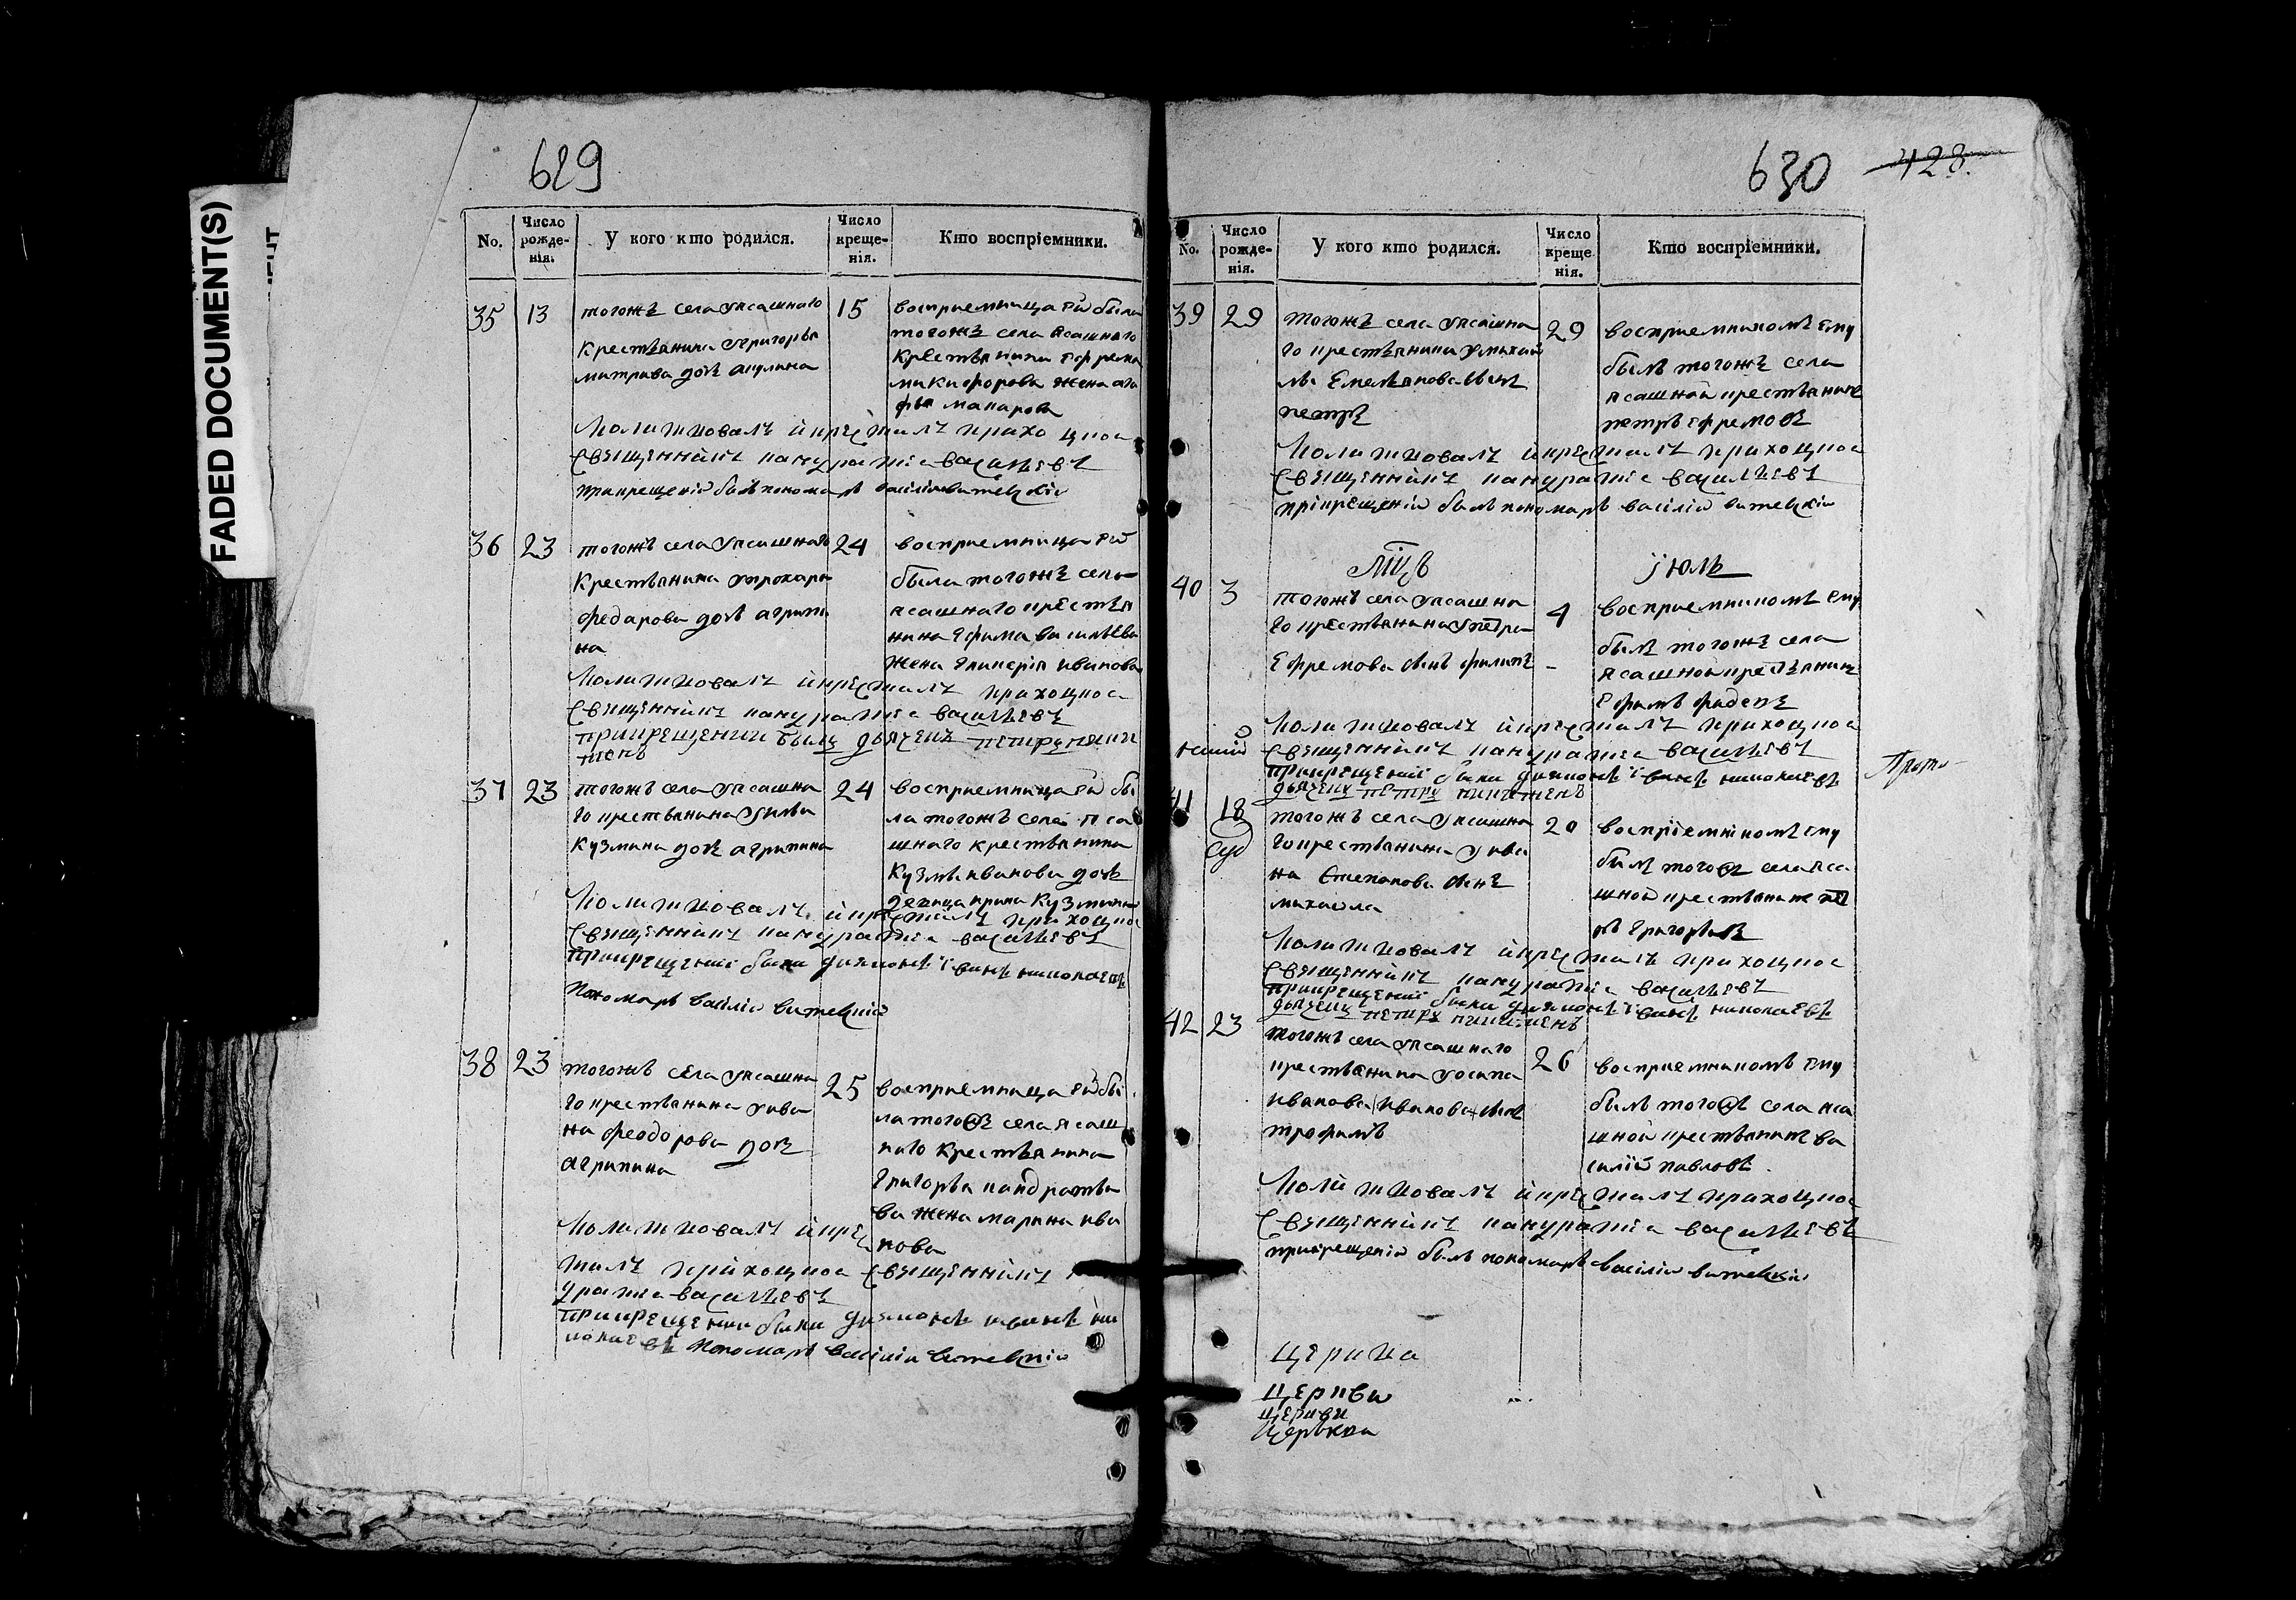 FADED DOCUMENT(S)
629
No.
Число рожде-нія.
У кого кто родился.
Число креще-нія.
Кто воспріемники.
35
13
тогожъ села уясашнаго
Крестьянина Григорья
митрива дочь акулина
15
восприемница ей была
тогожъ села ясашнаго
Крестьянина ефрема
никифорова жена ага
фья макарова
Молитвовалъ и крестилъ приходцкой
священникъ кандратеи васильевъ
прикрещении былъ пономарь василии витевскии
36
23
тогожъ села уясашнаго
Крестьянина
федарова дочь агрипи
на
24
восприемница ей
была тогожъ села
ясашнаго крестья
нина ефима васильева
жена иванова
Молитвовалъ и крестилъ приходцкои
священникъ кандратеи васильевъ
прикрещении былъ дьячекъ петръ
37
23
тогожъ села уясашна
го крестьянина уильи
Кузмина дочь агрипина
24
восприемница ей бы
ла тогожъ села яса
шнаго крестьянина
Кузмы иванова дочь
девица ирина Кузмина
Молитвовалъ и крестилъ приходцкои
священникъ кандратеи васильевъ
прикрещении были диаконъ иванъ николаевъ
пономарь василии витевскии
38
23
тогожъ села уясашна
го крестьянина уива
на феодорова дочь
агрипина
25
восприемница ей бы
ла тогожъ села ясаш
наго крестьянина
Григорья кандратье
ва жена марина ива
нова
Молитвовалъ и крес
тилъ приходцкои священникъ кан
дратеи васильевъ
прикрещении были диаконъ иванъ ни
колаевъ пономарь василии витевскии
630
428.
No.
Число рожде-нія.
У кого кто родился.
Число креще нія.
Кто воспріемники.
39
29
тогожъ села уясашна
го крестьянина умихаи
лы Емельянова сынъ
петръ
29
восприемникомъ ему
былъ тогожъ села
ясашной крестьянинъ
петръ ефремовъ
Молитвовалъ и крестилъ приходцкои
священникъ кандратеи васильевъ
прикрещении былъ пономарь василии витевскии
мцъ
июль
40
3
тогожъ села уясашна
го крестьянина упетра
Ефремова сынъ филипъ
4
восприемникомъ ему
былъ тогожъ села
ясашной крестьянинъ
Ефимъ
Молитвовалъ и крестилъ приходцкои
священникъ кандратеи васильевъ
прикрещении были диаконъ иванъ николаевъ
дьячекъ петръ
41
18
тогожъ села уясашна
го крестьянина уива
на Степанова сынъ
михаила
20
восприемникомъ ему
былъ тогожъ села яса
шной крестьянинъ пет
ръ Григорьевъ
Молитвовалъ и крестилъ приходцкои
священникъ кандратеи васильевъ
прикрещении были диаконъ иванъ николаевъ
дьячекъ петръ
42
23
тогожъ села уясашнаго
крестьянина уосипа
иванова иванова сынъ
трофимъ
26
восприемникомъ ему
былъ тогожъ села яса
шной крестьянинъ ва
силий павловъ
Молитвовалъ и крестилъ приходцкои
священникъ кандратеи васильевъ
прикрещении былъ пономарь василии витевскии
церкви
церкви